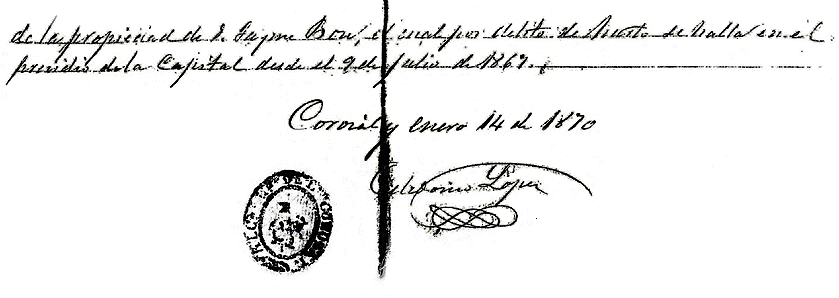 de la propiedad de D. Gayme Bou, el cual por delito de hurto se halla en el
presidio de la Capital desde el 9 de Julio de 1867.
Corozal y enero 14 de 1870
Lopez